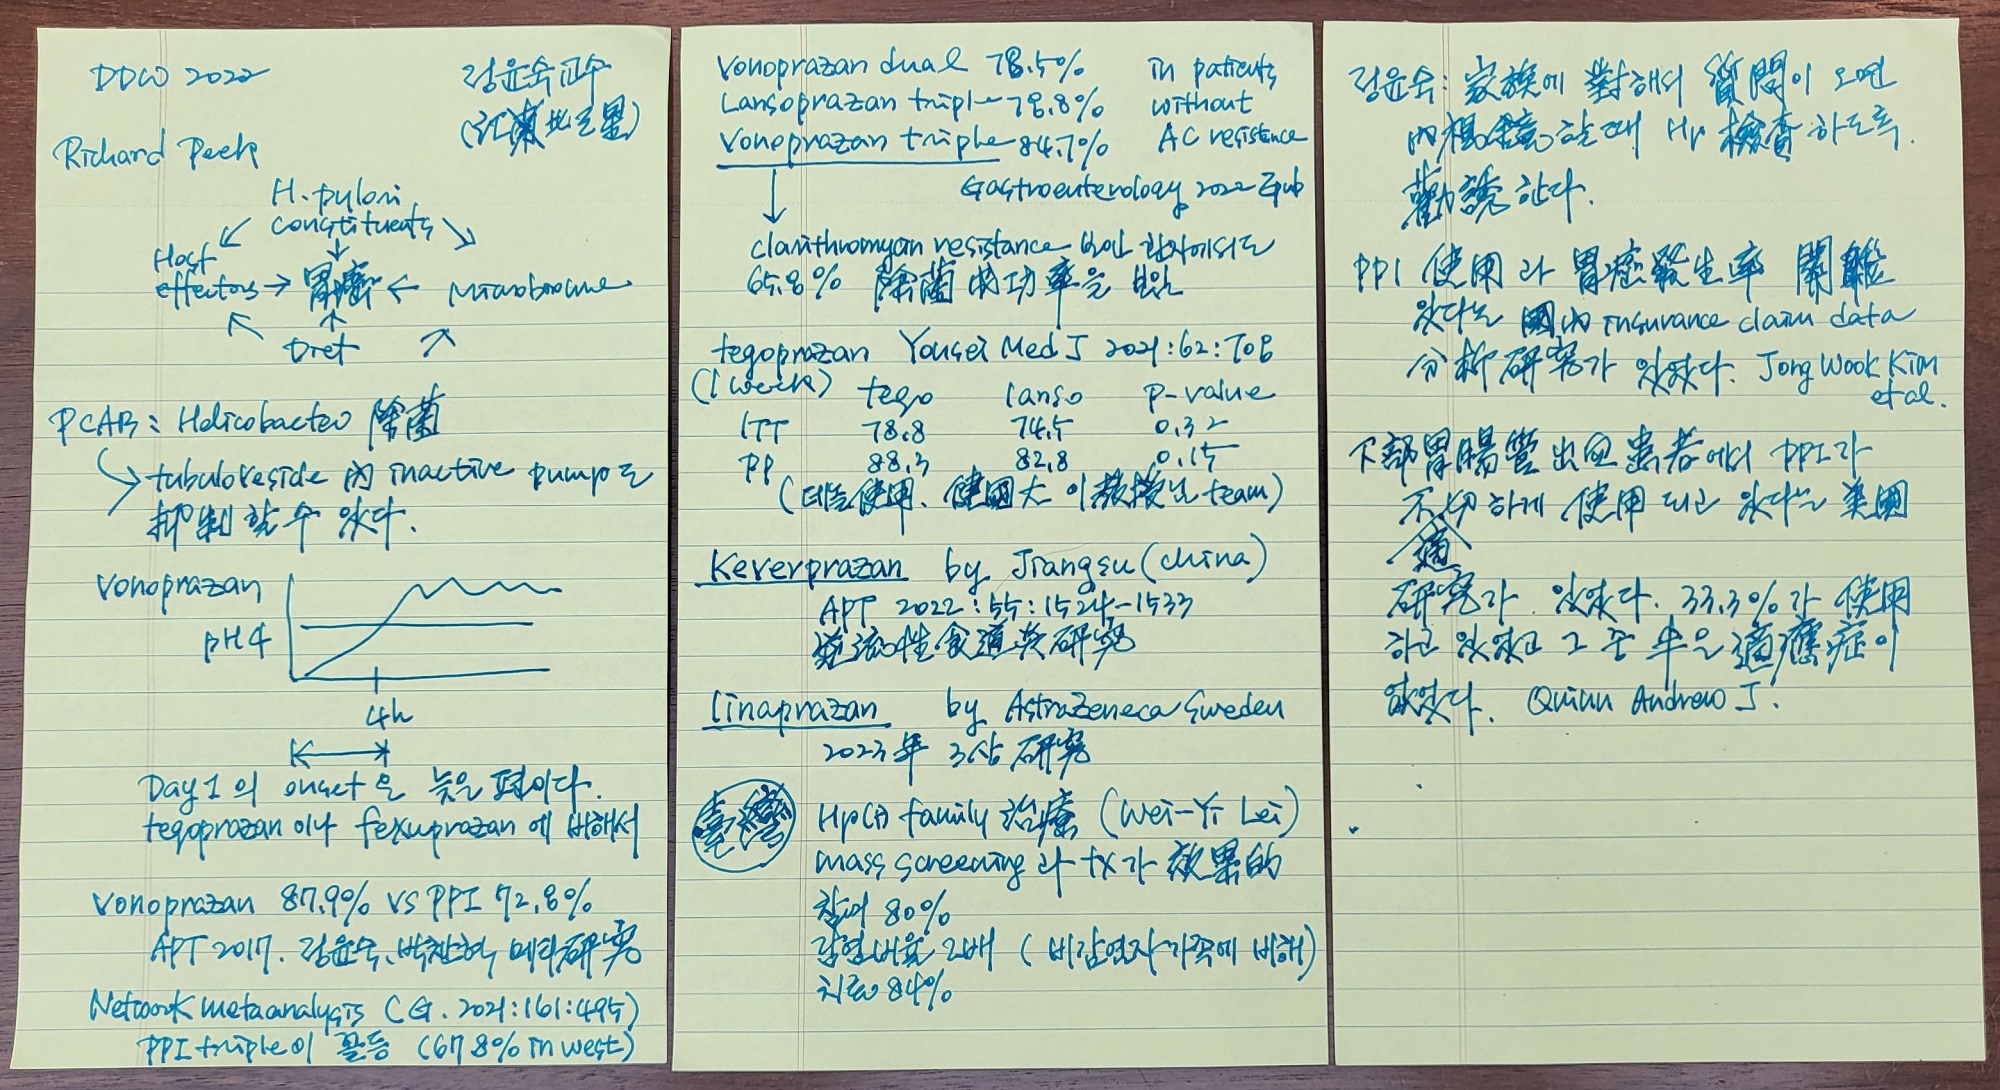 DDW 2022
정윤숙 교수
(江北三星)
Richard Peek
H. pylori
constituents
Host
effectors → 胃癌 ← Microbiome
Diet
PCAB : Helicobacter 除菌
tubulovesicle 內 inactive pump도
抑制할 수 있다.
Vonoprazan
pH 4
4h
Day 1의 onset은 늦은 편이다.
tegoprazan이나 fexuprazan에 비해서
Vonoprazan 87.9% vs PPI 72.8%
APT 2017. 정윤숙, 박찬혁 메타研究
Network metaanalysis (G. 2021:161:495)
PPI triple이 꼴등 (67.8% in west)
Vonoprazan dual 78.5% in patients
Lansoprazan triple 78.8% without
Vonoprazan triple 84.7% AC resistance
Gastroenterology 2022 Epub
clarithromycin resistance 보인 환자에서도
65.8% 除菌成功率을 보임
tegoprazan Yonsei Med J 2021:62:708
(1 week) tego lanso p-value
ITT 78.8 74.5 0.32
PP 88.3 82.8 0.15
(테놀使用. 建國大 이 敎授님 team)
Keverprazan by Jiangsu (china)
APT 2022:55:1524-1533
逆流性食道炎 研究
linaprazan by AstraZeneca Sweden
2023年 3상 研究
臺灣
Hp(+) family 治療 (Wei-Yi Lei)
mass screening과 tx가 效果的
참여 80%
감염비율 2배 (비감염자 가족에 비해)
치료 84%
정윤숙: 家族에 對해서 質問이 오면
內視鏡할 때 Hp 檢査하도록
勸誘한다.
PPI 使用과 胃癌發生率 關聯
있다는 國內 insurance claim data
分析 研究가 있었다. Jong Wook Kim
et al.
下部胃腸管出血患者에서 PPI가
不適切하게 使用되고 있다는 美國
研究가 있었다. 33.3%가 使用
하고 있었고 그 중 半은 適應症이
없었다. Quinn Andrew J.